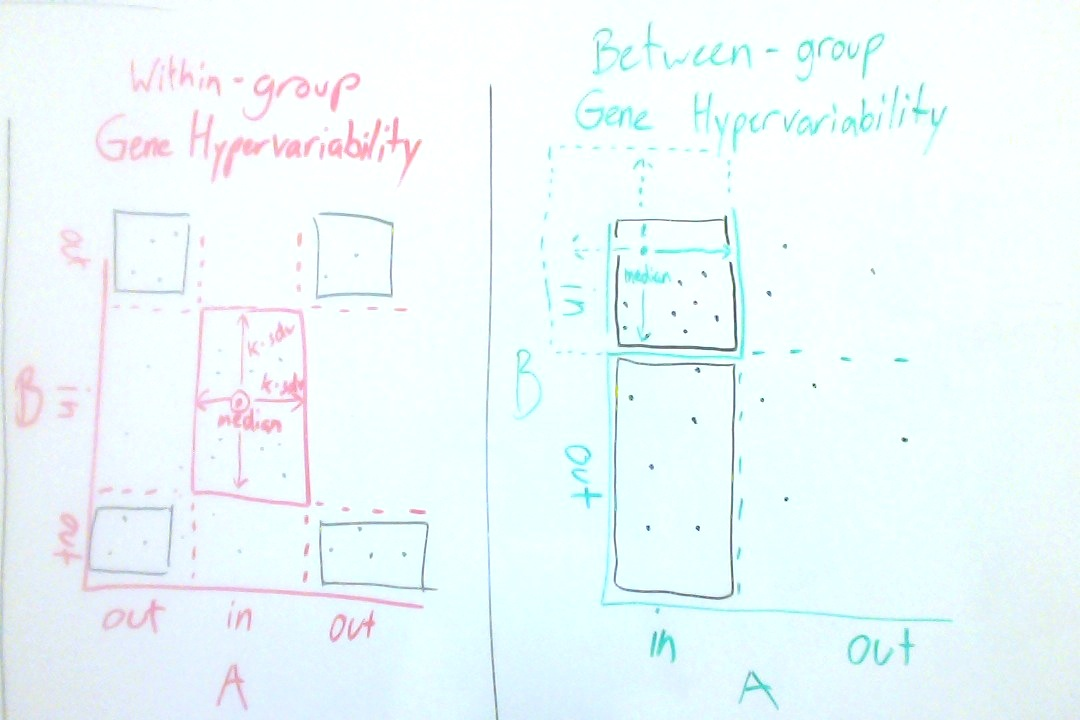 Within-group
Gene Hypervariability
out
in
out
B
k·sdv
k·sdv
median
out
in
out
A
Between-group
Gene Hypervariability
in
out
B
median
in
out
A